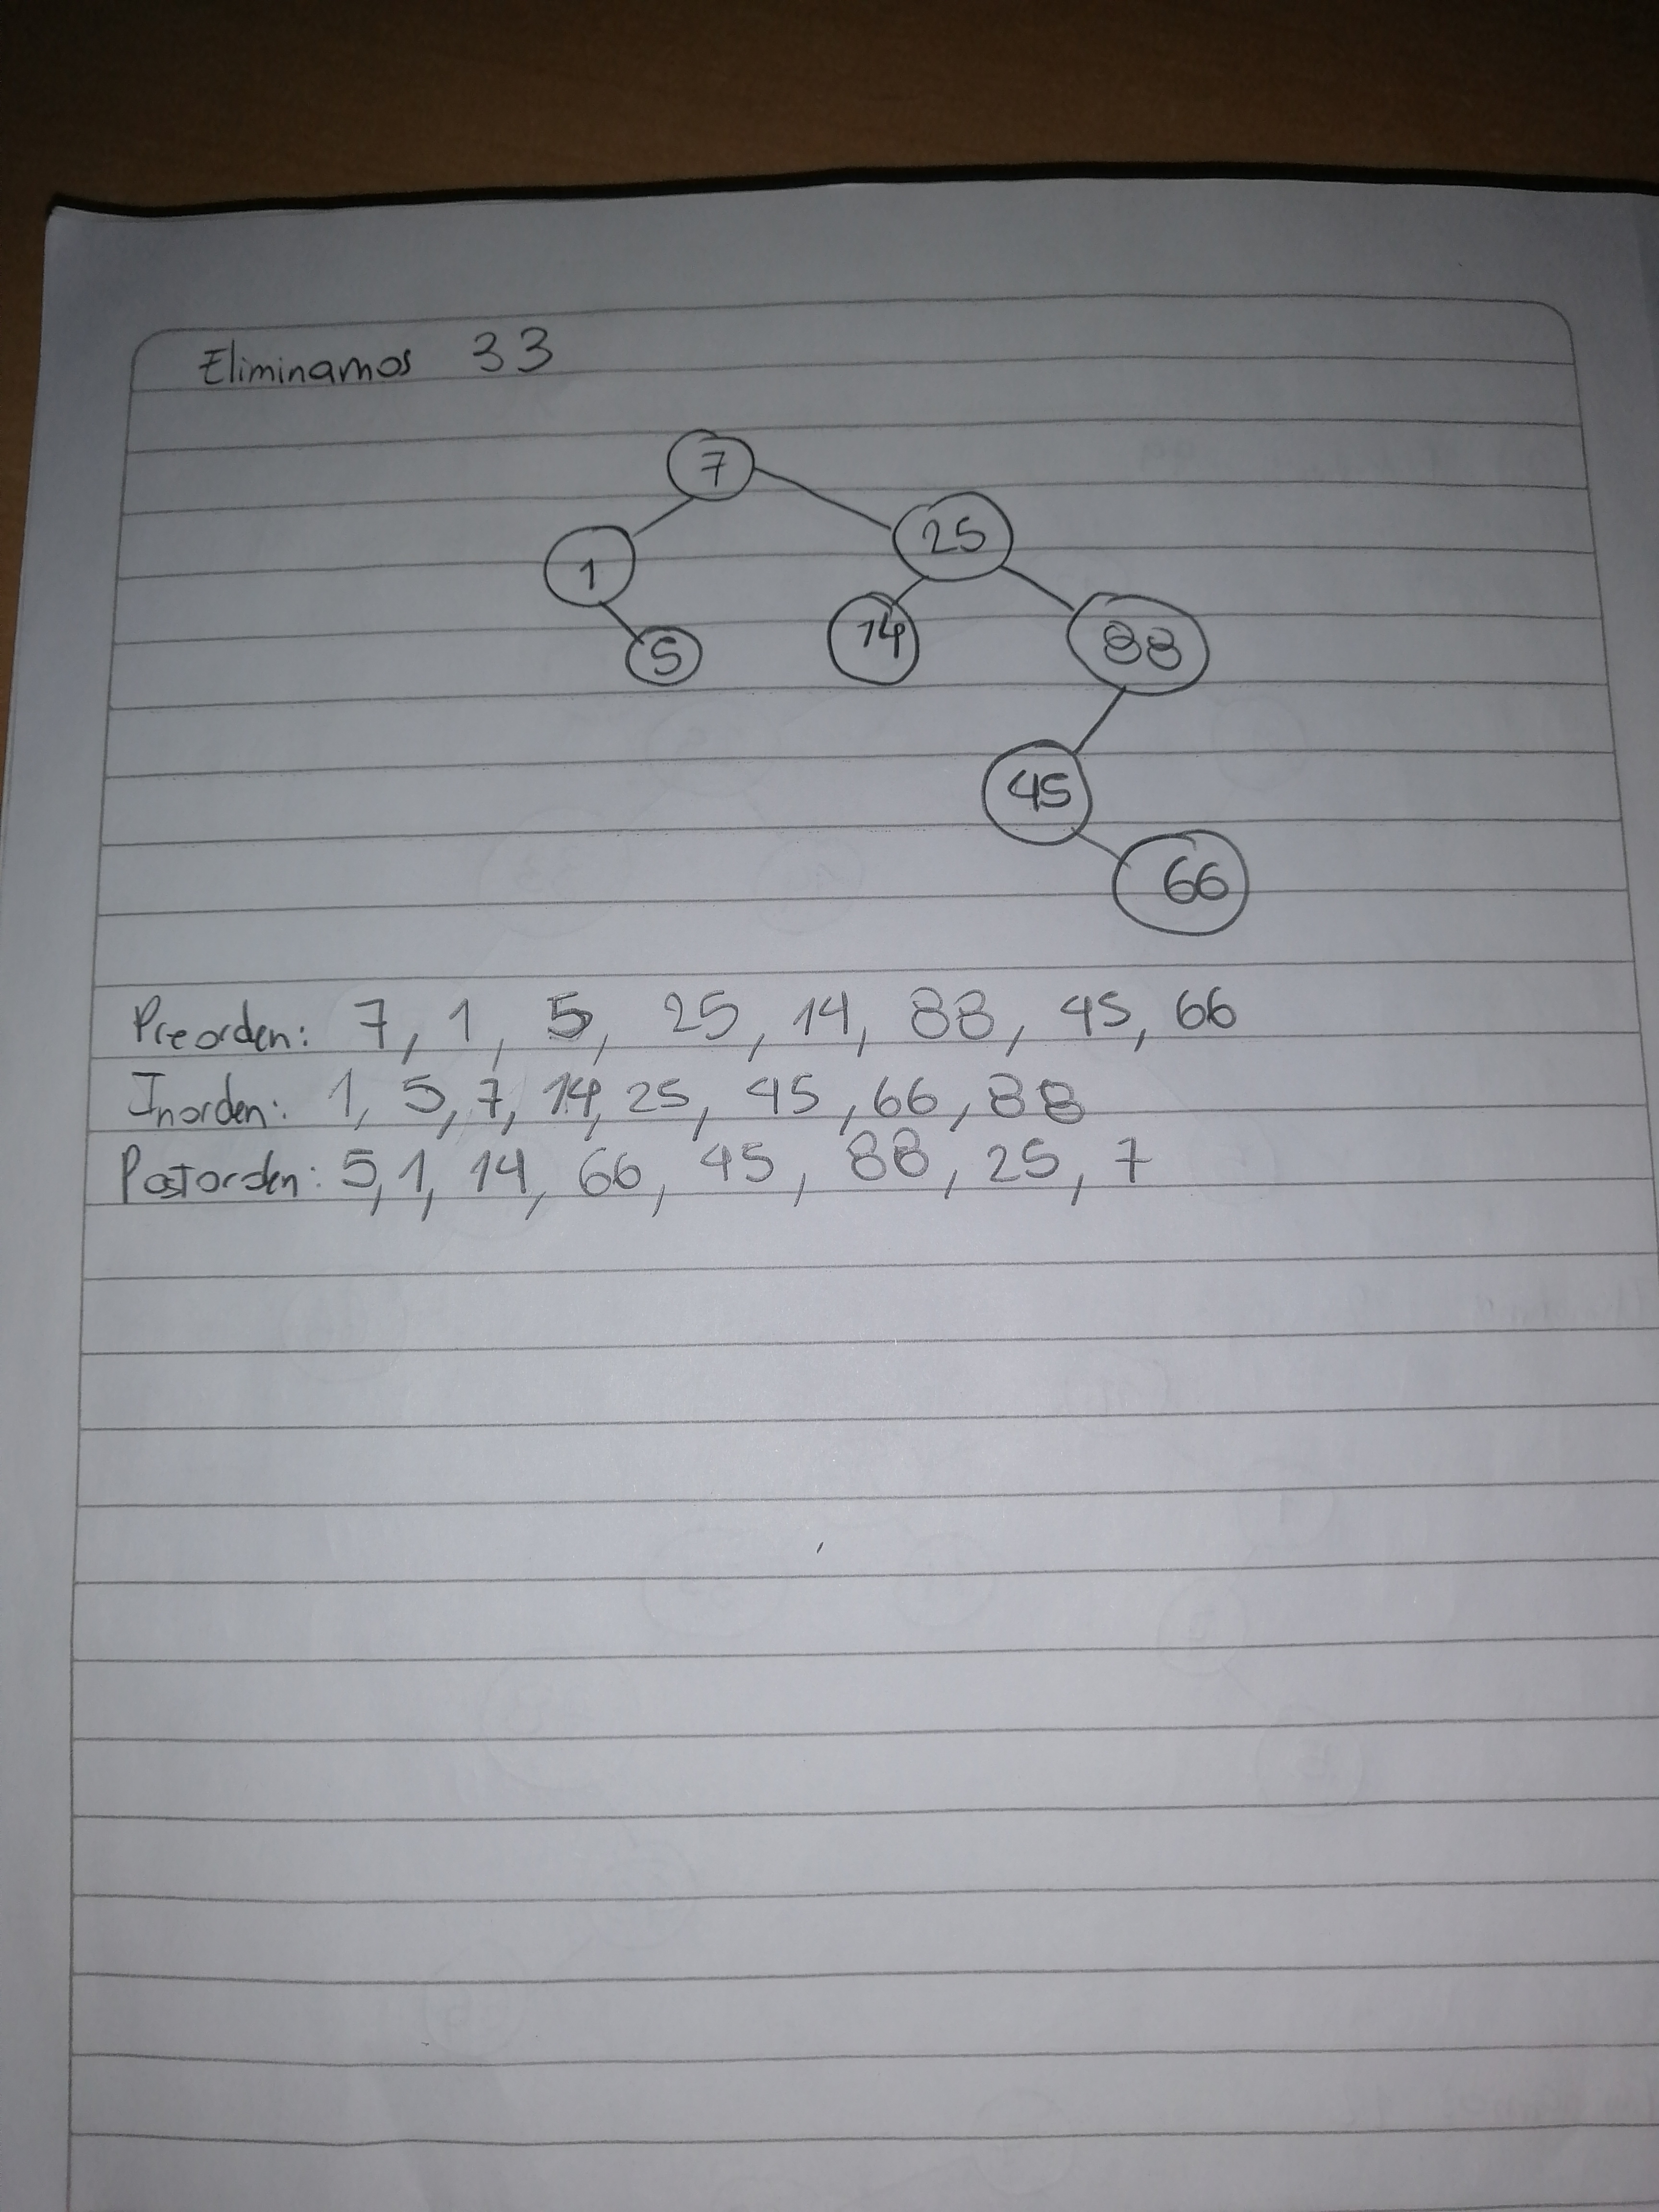 Eliminamos 33
7
25
1
14
88
5
45
66
Preorden: 7, 1, 5, 25, 14, 88, 45, 66
Inorden: 1, 5, 7, 14, 25, 45, 66, 88
Postorden: 5, 1, 14, 66, 45, 88, 25, 7